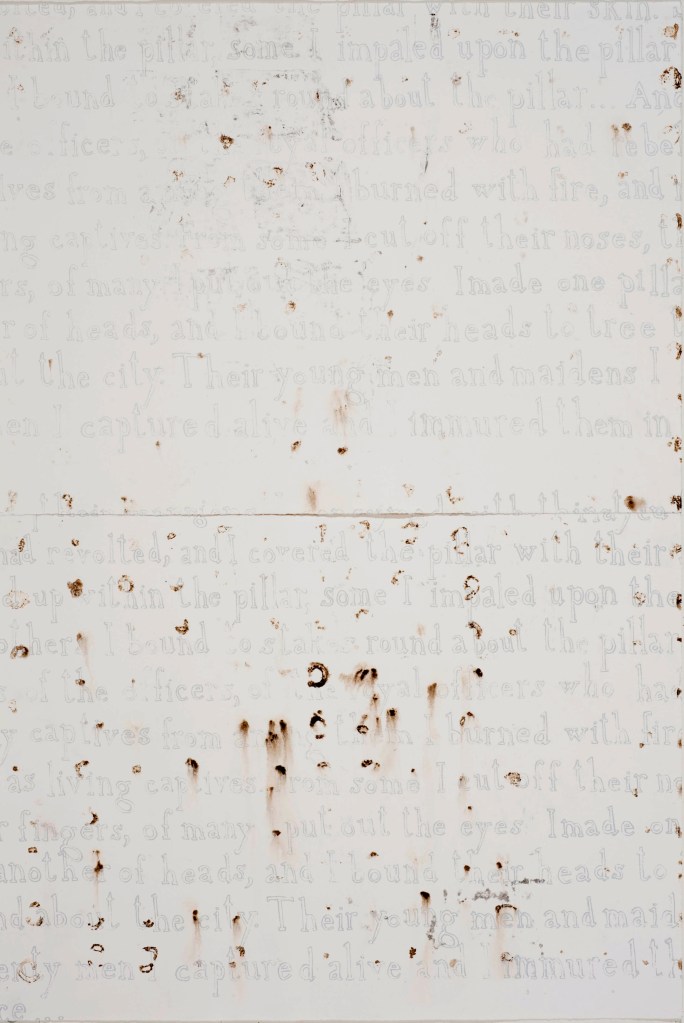 and I covered the pillar with their skin.
within the pillar, some I impaled upon the pillar
I bound to stakes round about the pillar... And
officers, of the royal officers who had rebel
ives from among them I burned with fire, and
ng captives. From some I cut off their noses,
rs, of many I put out the eyes. Imade one pilla
r of heads, and I bound their heads to tree
the city. Their young men and maidens I
men I captured alive and I immured them in
had revolted, and I covered the pillar with their
d up within the pillar, some I impaled upon the
others I bound to stakes round about the pillar
of the officers, of the royal officers who had
y captives from among them I burned with fire
as living captives. From some I cut off their no
r fingers, of many I put out the eyes. Imade on
another of heads, and I bound their heads to
nd about the city. Their young men and maid
enty men I captured alive and I immured th